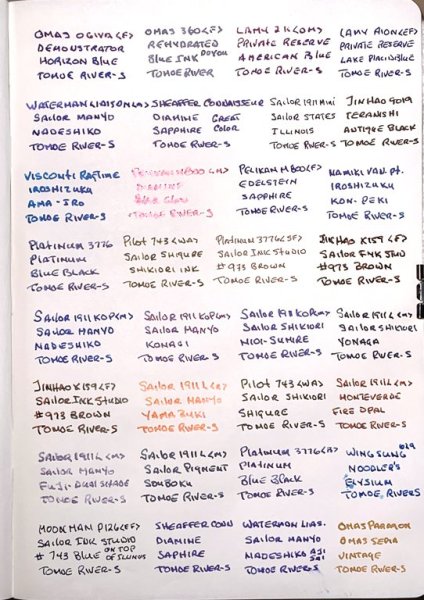 OMAS OGIVA <F>
DEMONSTRATOR
HORIZON BLUE
TOMOE RIVER-S
OMAS 360 <F>
REHYDRATED
BLUE INK DOYOU
TOMOE RIVER
LAMY 2K <OM>
PRIVATE RESERVE
AMERICAN BLUE
TOMOE RIVER-S
LAMY AION <F>
PRIVATE RESERVE
LAKE PLACID BLUE
TOMOE RIVER-S
WATERMAN LIAISON <M>
SAILOR MANYO
NADESHIKO
TOMOE RIVER-S
SHEAFFER CONNAISSEUR
DIAMINE GREAT
SAPPHIRE COLOR
TOMOE RIVER-S
SAILOR 1911 MINI
SAILOR STATES
ILLINOIS
TOMOE RIVER-S
JINHAO 9019
TERANSHI
ANTIQUE BLACK
TOMOE RIVER-S
VISCONTI RAGTIME
IROSHIZUKU
AMA-IRO
TOMOE RIVER-S
PELIKAN M800 <M>
DIAMINE
TOMOE RIVER-S
PELIKAN M800 <F>
EDELSTEIN
SAPPHIRE
TOMOE RIVER-S
NAMIKI VAN. PT.
IROSHIZUKU
KON-PEKI
TOMOE RIVER-S
PLATINUM 3776
PLATINUM
BLUE BLACK
TOMOE RIVER-S
PILOT 743 <WA>
SAILOR SHIGURE
SHIKIORI INK
TOMOE RIVER-S
PLATINUM 3776 <SF>
SAILOR INK STUDIO
#973 BROWN
TOMOE RIVER-S
JINHAO X159 <F>
SAILOR INK STUD
#973 BROWN
TOMOE RIVER-S
SAILOR 1911 KOP <M>
SAILOR MANYO
NADESHIKO
TOMOE RIVER-S
SAILOR 1911 KOP <M>
SAILOR MANYO
KONAGI
TOMOE RIVER-S
SAILOR 1911 KOP <M>
SAILOR SHIKIORI
NIOI-SUMIRE
TOMOE RIVER-S
SAILOR 1911 L <M>
SAILOR SHIKIORI
YONAGA
TOMOE RIVER-S
JINHAO X159 <F>
SAILOR INK STUDIO
#973 BROWN
TOMOE RIVER-S
SAILOR 1911L
SAILOR MANYO
YAMABUKI
TOMOE RIVER-S
PILOT 743 <WA>
SAILOR SHIKIORI
SHIGURE
TOMOE RIVER-S
SAILOR 1911L <M>
MONTEVERDE
FIRE OPAL
TOMOE RIVER-S
SAILOR 1911L <M>
SAILOR MANYO
FUJI-DUAL SHADE
TOMOE RIVER-S
SAILOR 1911 L <M>
SAILOR PIGMENT
SOUBOKU
TOMOE RIVER-S
PLATINUM 3776 <B>
PLATINUM
BLUE BLACK
TOMOE RIVER-S
WING SUNG 629
NOODLER'S
ELYSIUM
TOMOE RIVERS
MOON MAN P126 <F>
SAILOR INK STUDIO
#743 BLUE ON TOP
TOMOE RIVER-S
SHEAFFER CONN
DIAMINE
SAPHIRE
TOMOE RIVER-S
WATERMON LIAS.
SAILOR MANYO
NADESHIKO AJI SAI
TOMOE RIVER-S
OMAS PARAGON
OMAS SEPIA
VINTAGE
TOMOE RIVER-S